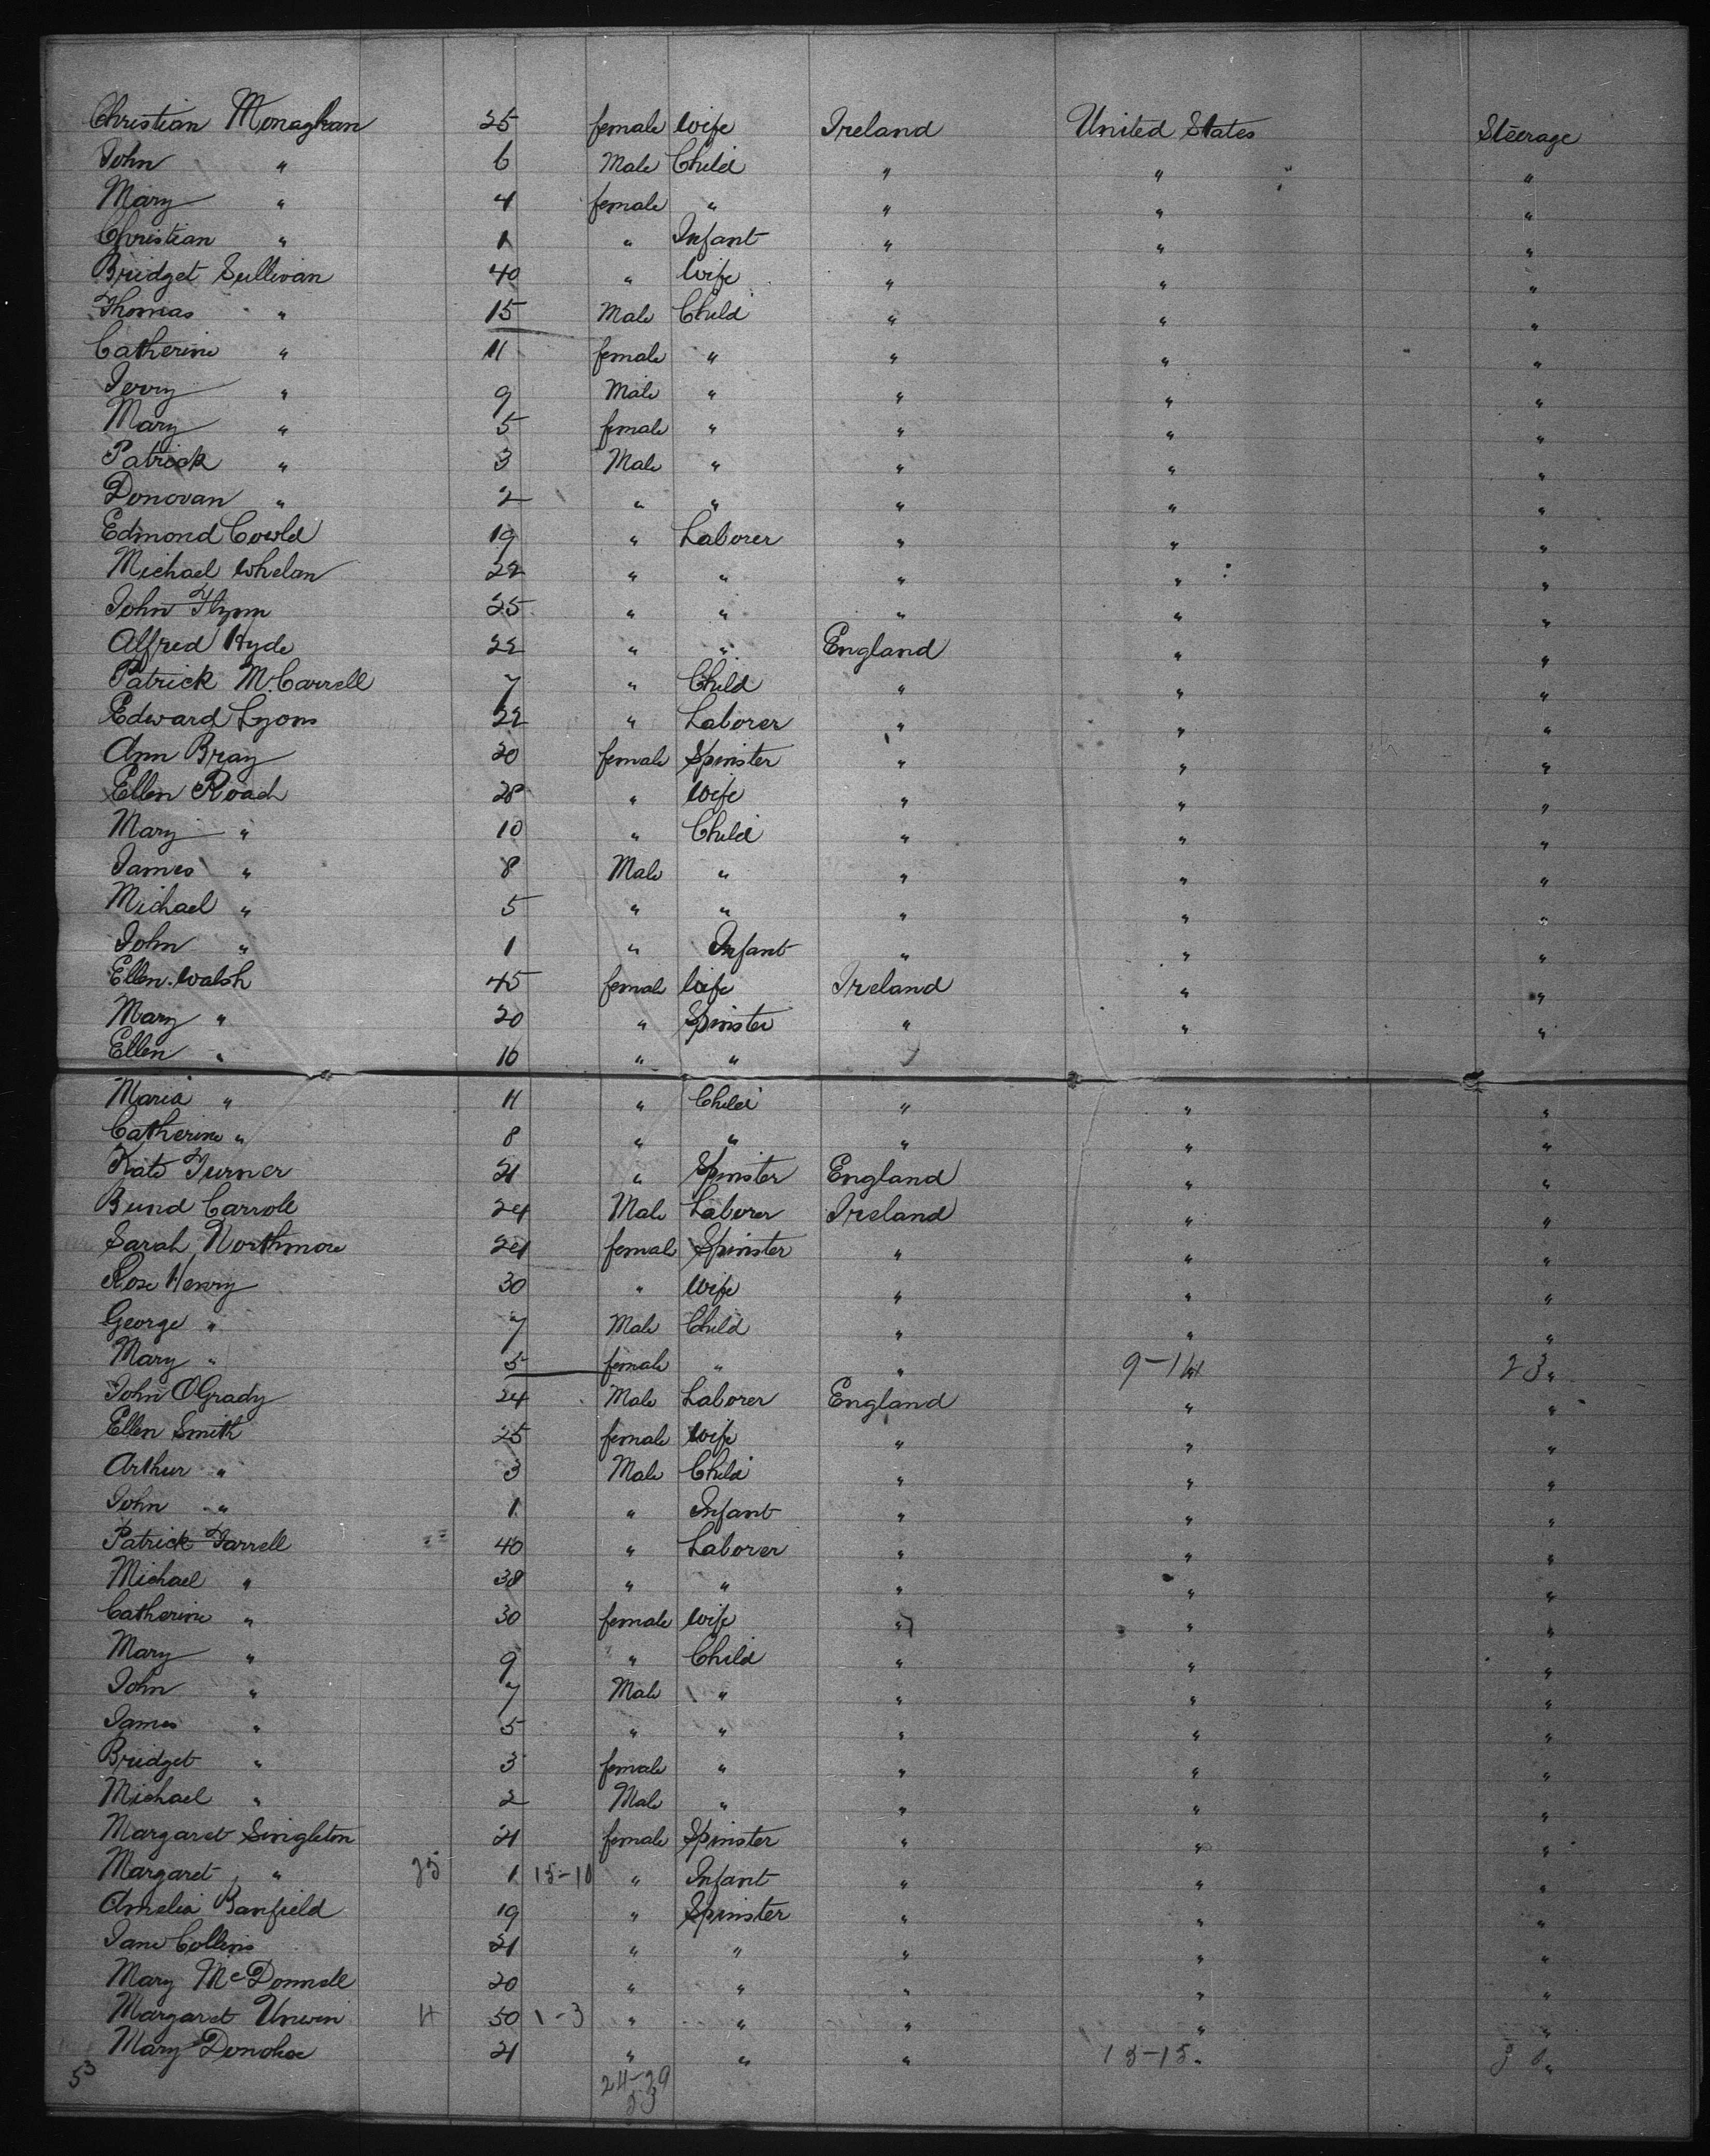 Christian Monaghan 25 female Wife Ireland United States Steerage
John " 6 Male Child " " "
Mary " 4 female " " " "
Christian " 1 " Infant " " "
Bridget Sullivan 40 " Wife " " "
Thomas " 15 Male Child " " "
Catherine " 11 female " " " "
Jerry " 9 Male " " " "
Mary " 5 female " " " "
Patrick " 3 Male " " " "
Donovan " 2 " " " " "
Edmond Cowld 19 " Laborer " " "
Michael Whelan 22 " " " " "
John Flynn 25 " " " " "
Alfred Hyde 22 " " England " "
Patrick McCarrell 7 " Child " " "
Edward Lyons 22 " Laborer " " "
Ann Bray 20 female Spinster " " "
Ellen Roach 28 " Wife " " "
Mary " 10 " Child " " "
James " 8 Male " " " "
Michael " 5 " " " " "
John " 1 " Infant " " "
Ellen Walsh 45 female Wife Ireland " "
Mary " 20 " Spinster " " "
Ellen " 16 " "
Maria " 11 " Child " " "
Catherine " 8 " " " " "
Kate Turner 21 " Spinster England " "
Bund Carroll 24 Male Laborer Ireland " "
Sarah Northmore 24 female Spinster " " "
Rose Henry 30 " Wife " " "
George " 7 Male Child " " "
Mary " 5 female " " 9-14 " 23 "
John OGrady 24 Male Laborer England " "
Ellen Smith 25 female Wife " " "
Arthur " 3 Male Child " " "
John " 1 " Infant " " "
Patrick Farrell 40 " Laborer " " "
Michael " 38 " " " " "
Catherine " 30 female Wife " " "
Mary " 9 " Child " " "
John " 7 Male " " " "
James " 5 " " " " "
Bridget " 3 female " " " "
Michael " 2 Male " " " "
Margaret Singleton 21 female Spinster " " "
Margaret " 25 1 15-10 " Infant " " "
Amelia Banfield 19 " Spinster " " "
Jane Collins 21 " " " " "
Mary McDonnell 20 " " " " "
Margaret Unwin 4 50 1-3 " " " " "
Mary Donohoe 21 " " " 15-15 " "
53 24-29
53